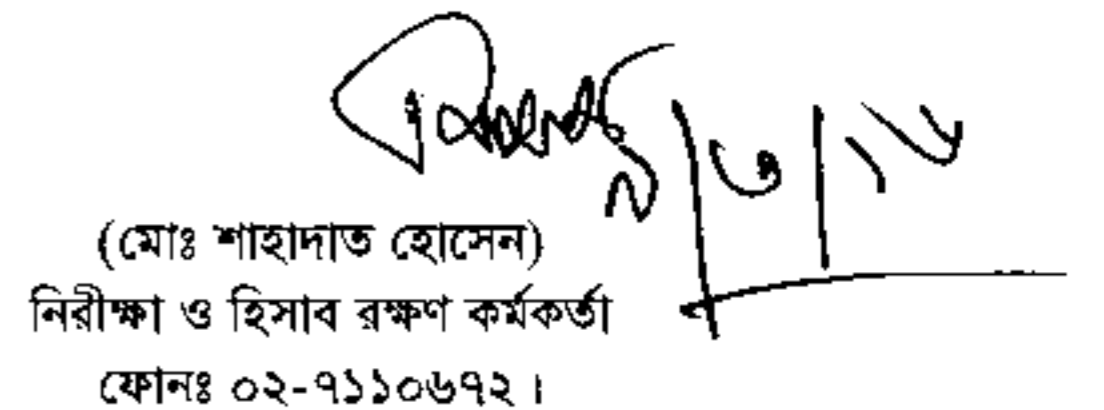 (মোঃ শাহাদাত হোসেন)
নিরীক্ষা ও হিসাব রক্ষণ কর্মকর্তা
ফোনঃ ০২-৭১১০৬৭২।